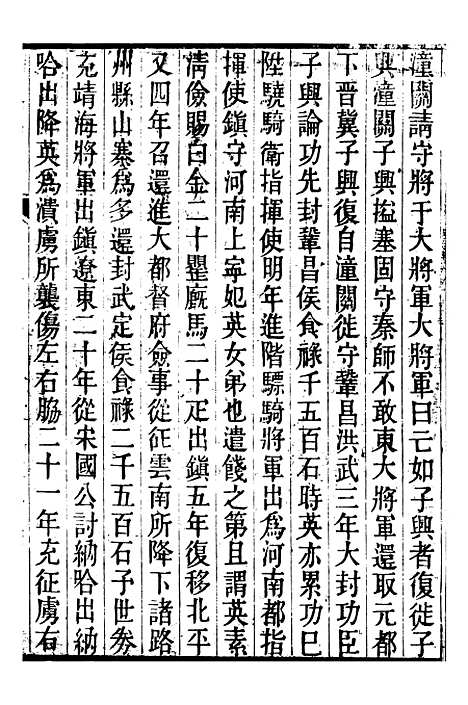 潼關請守將于大將軍大將軍曰亡如子興者復徙子
興潼關子興搤塞固守秦師不敢東大將軍還取元都
下晋冀子興復自潼關徙守鞏昌洪武三年大封功臣
子興論功先封鞏昌侯食祿千五百石時英亦累功巳
陞驍騎衛指揮使明年進階驃騎將軍出爲河南都指
揮使鎭守河南上寧妃英女弟也遣餞之第且謂英素
淸儉賜白金二十罌廐馬二十疋出鎭五年復移北平
又四年召還進大都督府僉事從征雲南所降下諸路
州縣山寨爲多還封武定侯食祿二千五百石予世券
充靖海將軍出鎭遼東二十年從宋國公討納哈出納
哈出降英爲潰虜所襲傷左右脇二十一年充征虜右